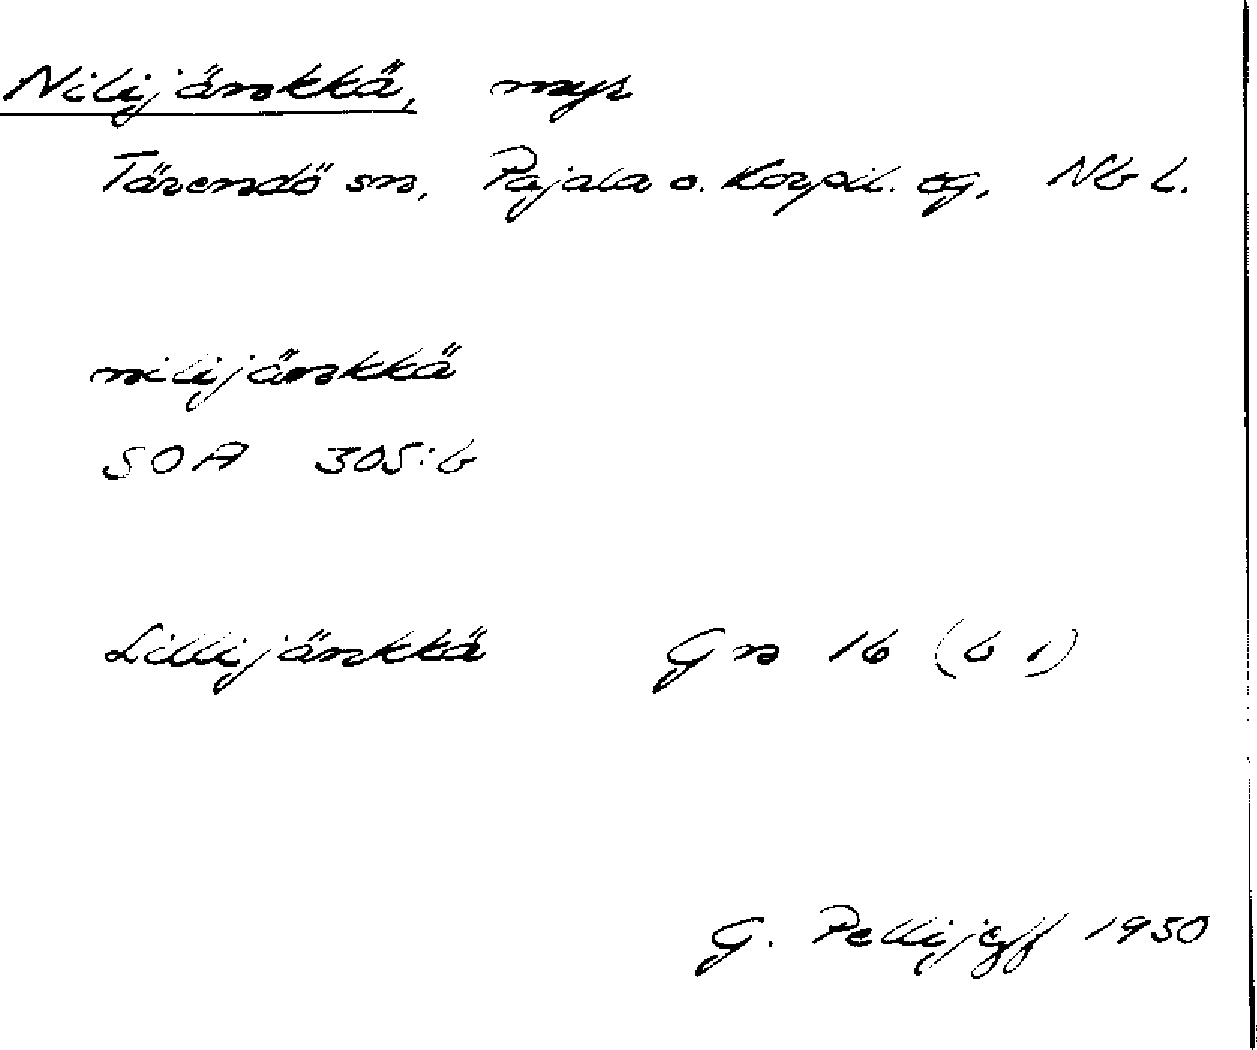 Nilijänkkä, myr
Tärendö sn, Pajala o. Korpil. tg, Nb l.
nilijänkkä
SOA 305:6
Lillijänkkä Gn 16 (b 1)
G. Pellijeff 1950